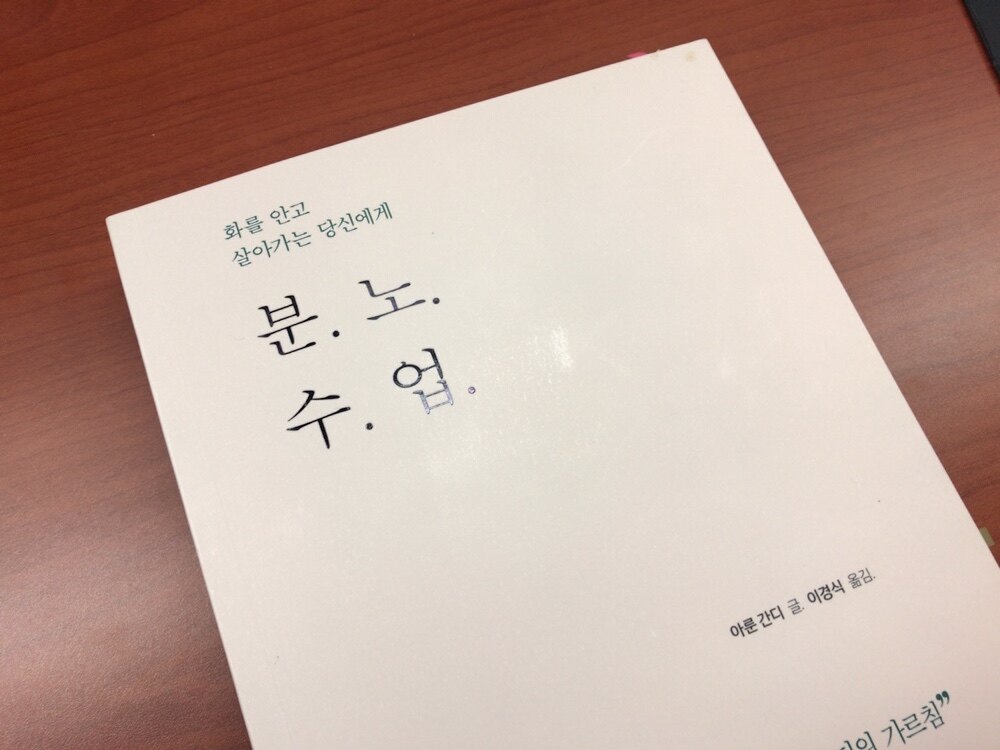 화를 안고
살아가는 당신에게
분. 노.
수. 업.
아룬 간디 글. 이경식 옮김.
가르침”